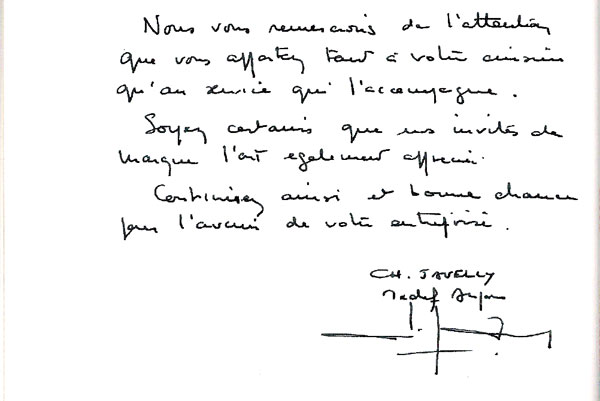 Nous vous remercions de l'attention
que vous apportez tant à votre cuisine
qu'au service qui l'accompagne.
Soyez certains que nos invités de
marque l'ont également apprécié.
Continuez ainsi et bonne chance
pour l'avenir de votre entreprise.
CH. JAVELLY